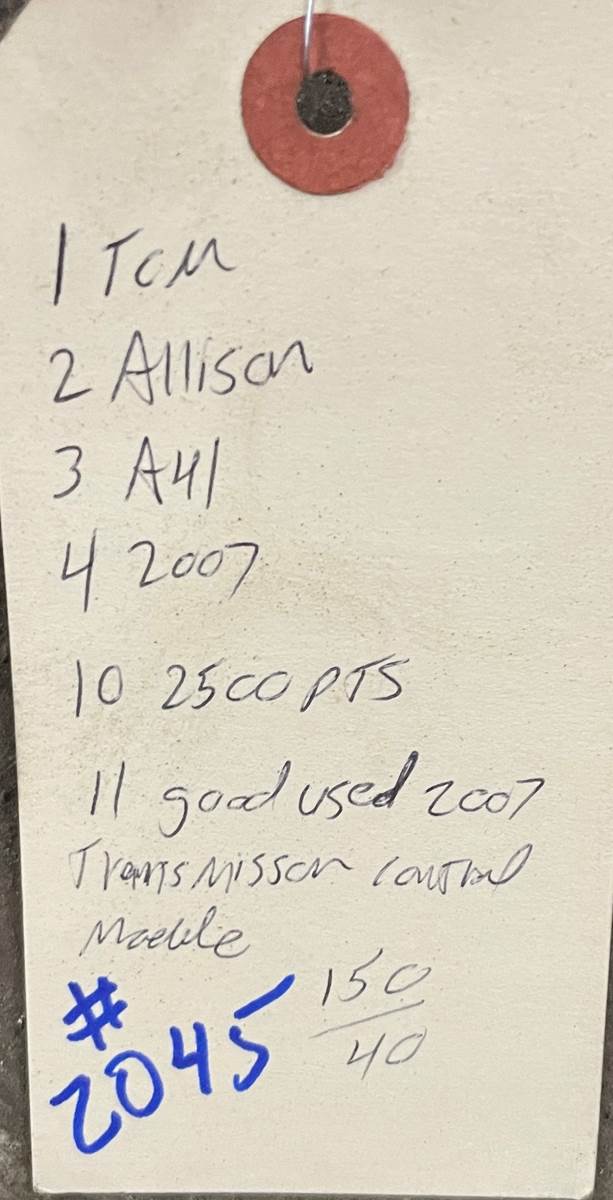 1 TCM
2 Allison
3 A41
4 2007
10 2500 PTS
11 good used 2007
Transmisson control
Module
#
2045
150
40